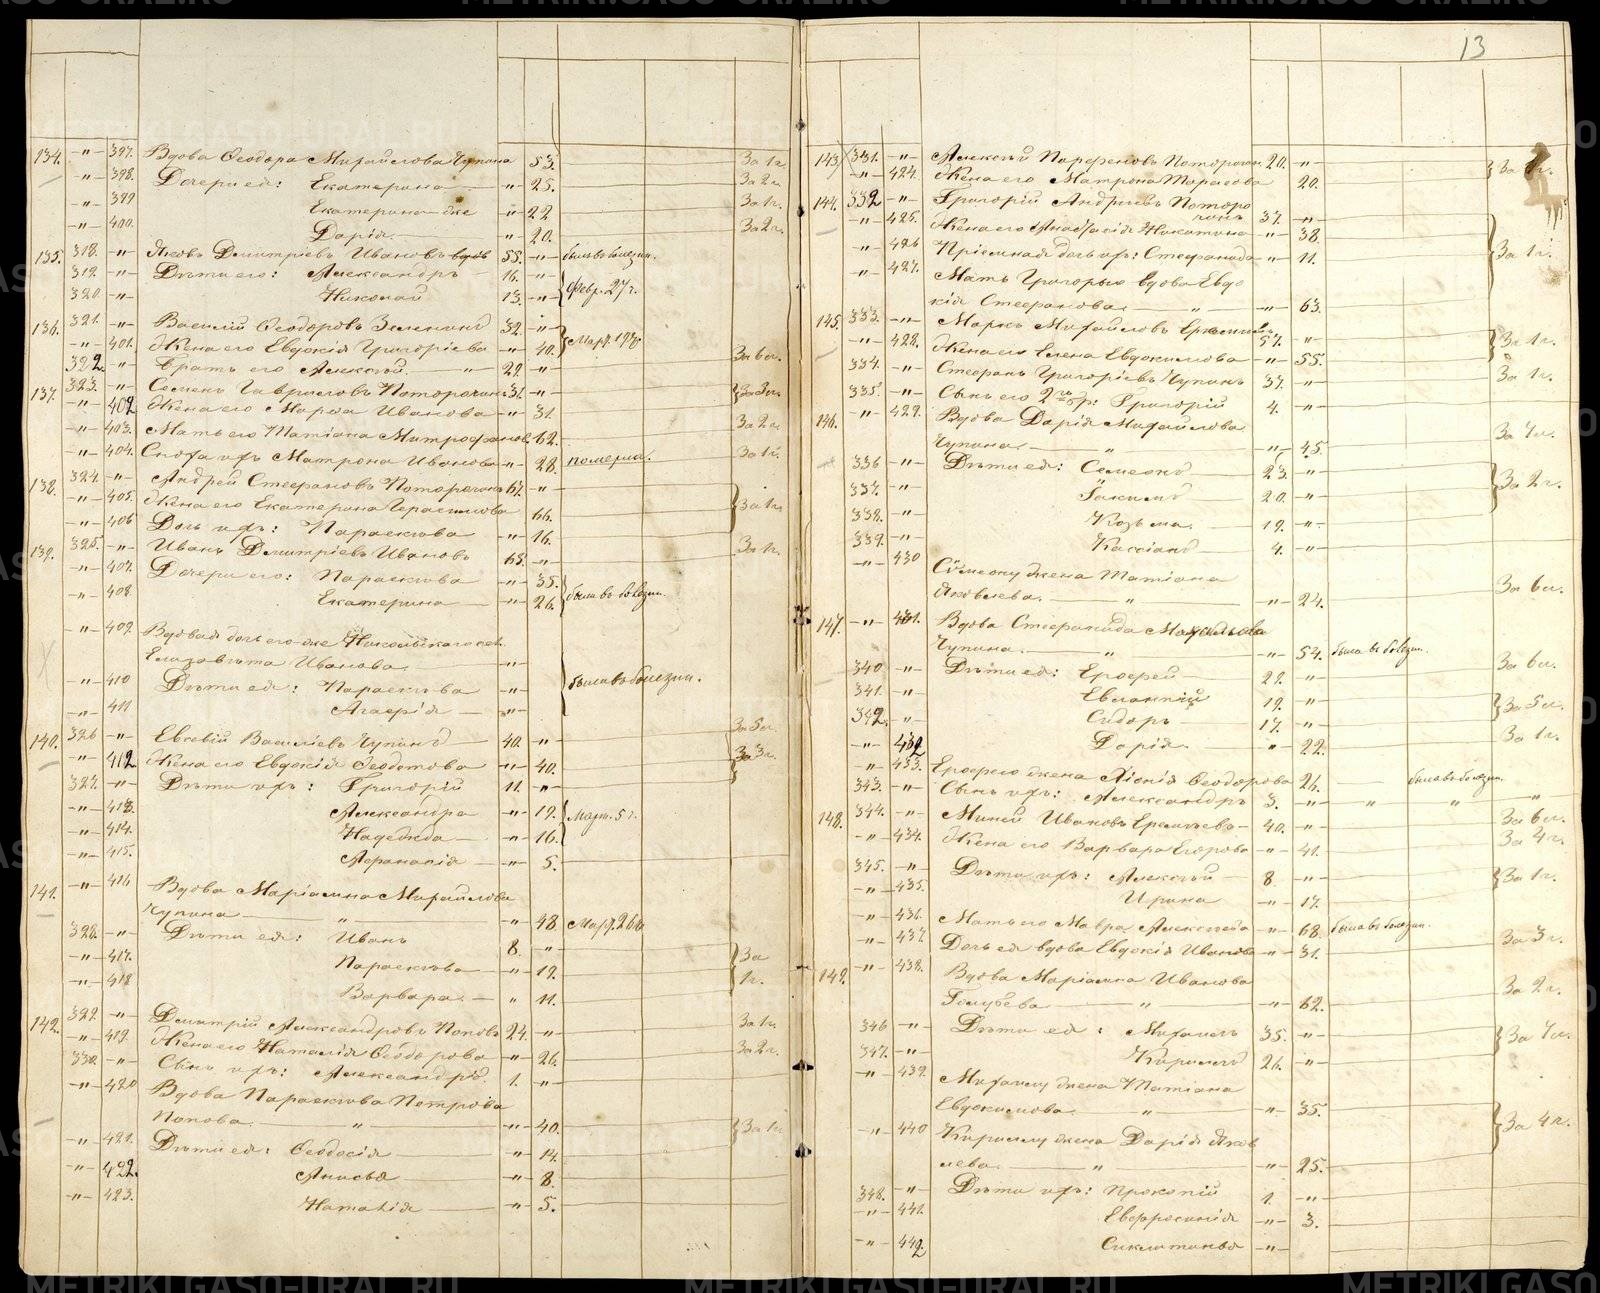 13
134. -„- 397. Вдова Ѳеодора Михайлова Чупина 53. За 1 г.
-„- 398. Дочери ея: Екатерина -„- 25. За 2 г.
-„- 399 Екатерина-же -„- 22 За 1 г.
-„- 400. Дарія. -„- 20. За 2 г.
135. 318. -„- Яковъ Димитріевъ Ивановъ вдовъ 55. -„- былъ въ болѣзни.
319. -„- Дѣти его: Александръ 16. -„-
320. -„- Николай 13. -„- Февр. 27 г.
136. 321. -„- Василій Ѳеодоровъ 32. -„-
-„- 401. Жена его Евдокія Григоріева -„- 40. Март. 19
322. -„- Братъ его Алексѣй. -„- 22. -„- За 6 л.
137. 323. -„- Семенъ Гавриловъ Поторочинъ 31. -„-
-„- 402. Жена его Марѳа Иванова -„- 31. За 3 г.
-„- 403. Мать его Татіана Митрофанова 62. За 2 г.
-„- 404. Сноха ихъ Матрона Иванова -„- 28. померла. За 1 г.
138. 324. -„- Андрей Стефановъ Поторочинъ 67. -„-
-„- 405. Жена его Екатерина Герасимова 66. За 1 г.
-„- 406 Дочь ихъ: Параскева -„- 16.
139. 325. -„- Иванъ Димитріевъ Ивановъ 65. -„- За 1 г.
-„- 407. Дочери его: Параскева -„- 35.
-„- 408 Екатерина -„- 26. была въ болѣзни.
-„- 409. Вдовая дочь его-же Никольскаго
Елизавета Иванова. -„-
-„- 410 Дѣти ея: Параскева -„- была въ болѣзни.
-„- 411 Агафія -„-
140. 326 -„- Евсевій Василіевъ Чупинъ 40. -„- За 5 л.
-„- 412. Жена его Евдокія Ѳеодотова -„- 40. За 3 г.
327. -„- Дѣти ихъ: Григорій 11. -„-
-„- 413. Александра -„- 19. Март. 5 г.
-„- 414. Надежда -„- 16.
-„- 415. Аѳанасія -„- 5.
141. -„- 416 Вдова Маріамна Михайлова
Чупина „ -„- 48. Март. 26
328. -„- Дѣти ея: Иванъ 8. -„-
-„- 417. Параскева -„- 19. За
-„- 418 Варвара. -„- 11. 1 г.
142. 329. -„- Димитрій Александровъ Поповъ 24. -„- За 1 г.
-„- 419. Жена его Наталія Ѳеодорова -„- 26. За 2 г.
330. -„- Сынъ ихъ: Александръ. 1. -„-
-„- 420 Вдова Параскева Петрова
Попова. „ -„- 40.
-„- 421. Дѣти ея: Ѳеодосія -„- 14. За 1 г.
-„- 422. Анисья -„- 8.
-„- 423. Наталія -„- 5.
143. 331. -„- Алексѣй Парфеновъ Поторочин. 20. -„-
-„- 424. Жена его Матрона Тарасова 20. За 1 г.
144. 332 -„- Григорій Андреевъ Поторо
чинъ 37. -„-
-„- 425. Жена его Анастасія Никитина -„- 38.
-„- 426 Пріемная дочь ихъ: Стефанида -„- 11. За 1 г.
-„- 427. Мать Григорью вдова Евдо
кія Стефанова. „ -„- 63.
145. 333. -„- Маркъ Михайловъ 57. -„-
-„- 428. Жена его Елена Евдокимова -„- 55. За 1 г.
334. -„- Стефанъ Григоріевъ Чупинъ 37. -„- За 1 г.
335. -„- Сынъ его 2го бр: Григорій 4. -„-
146. -„- 429. Вдова Дарія Михайлова
Чупина. „ -„- 45. За 4 г.
336 -„- Дѣти ея: Семеонъ 23. -„-
337. -„- Іакимъ 20. -„- За 2 г.
338. -„- Козьма. 12. -„-
339. -„- Кассіанъ 4. -„-
-„- 430 Сѵмеону жена Татіана
Яковлева. „ -„- 24. За 6 л.
147. -„- 431. Вдова Стефанида
Чупина. „ -„- 54. была въ болѣзни.
340 -„- Дѣти ея: Ерофей 22. -„- За 6 л.
341. -„- Евлампій 19. -„-
342. -„- Сидоръ 17. -„- За 5 л.
-„- 432 Дарія. „ 22. За 1 г.
-„- 433. Ерофею жена Ѳеодорова 26. была въ болѣзни.
343. -„- Сынъ ихъ: Александръ 3. -„- „ „ „
148. 344. -„- Миней Ивановъ 40. -„- За 6 л.
-„- 434. Жена его Варвара Егорова -„- 41. За 4 г.
345. -„- Дѣти ихъ: Алексѣй 8. -„-
-„- 435. Ирина -„- 17. За 1 г.
-„- 436. Мать его Мавра Алексѣева -„- 68. была въ болѣзни.
-„- 437. Дочь ея вдова Евдокія Иванова -„- 31. За 3 г.
149. -„- 438. Вдова Маріамна Иванова
Голубева „ -„- 62. За 2 г.
346 -„- Дѣти ея: Михаилъ 35. -„-
347. -„- Кириллъ 26. -„-
-„- 439. Михаилу жена Татіана
Евдокимова. „ -„- 35.
-„- 440 Кириллу жена Дарія Яков
лева. „ -„- 25. За 4 г.
348. -„- Дѣти ихъ: Прокопій 1. -„-
-„- 441. Евфросинія -„- 3.
-„- 442. -„-
METRIKI.GASO-URAL.RU